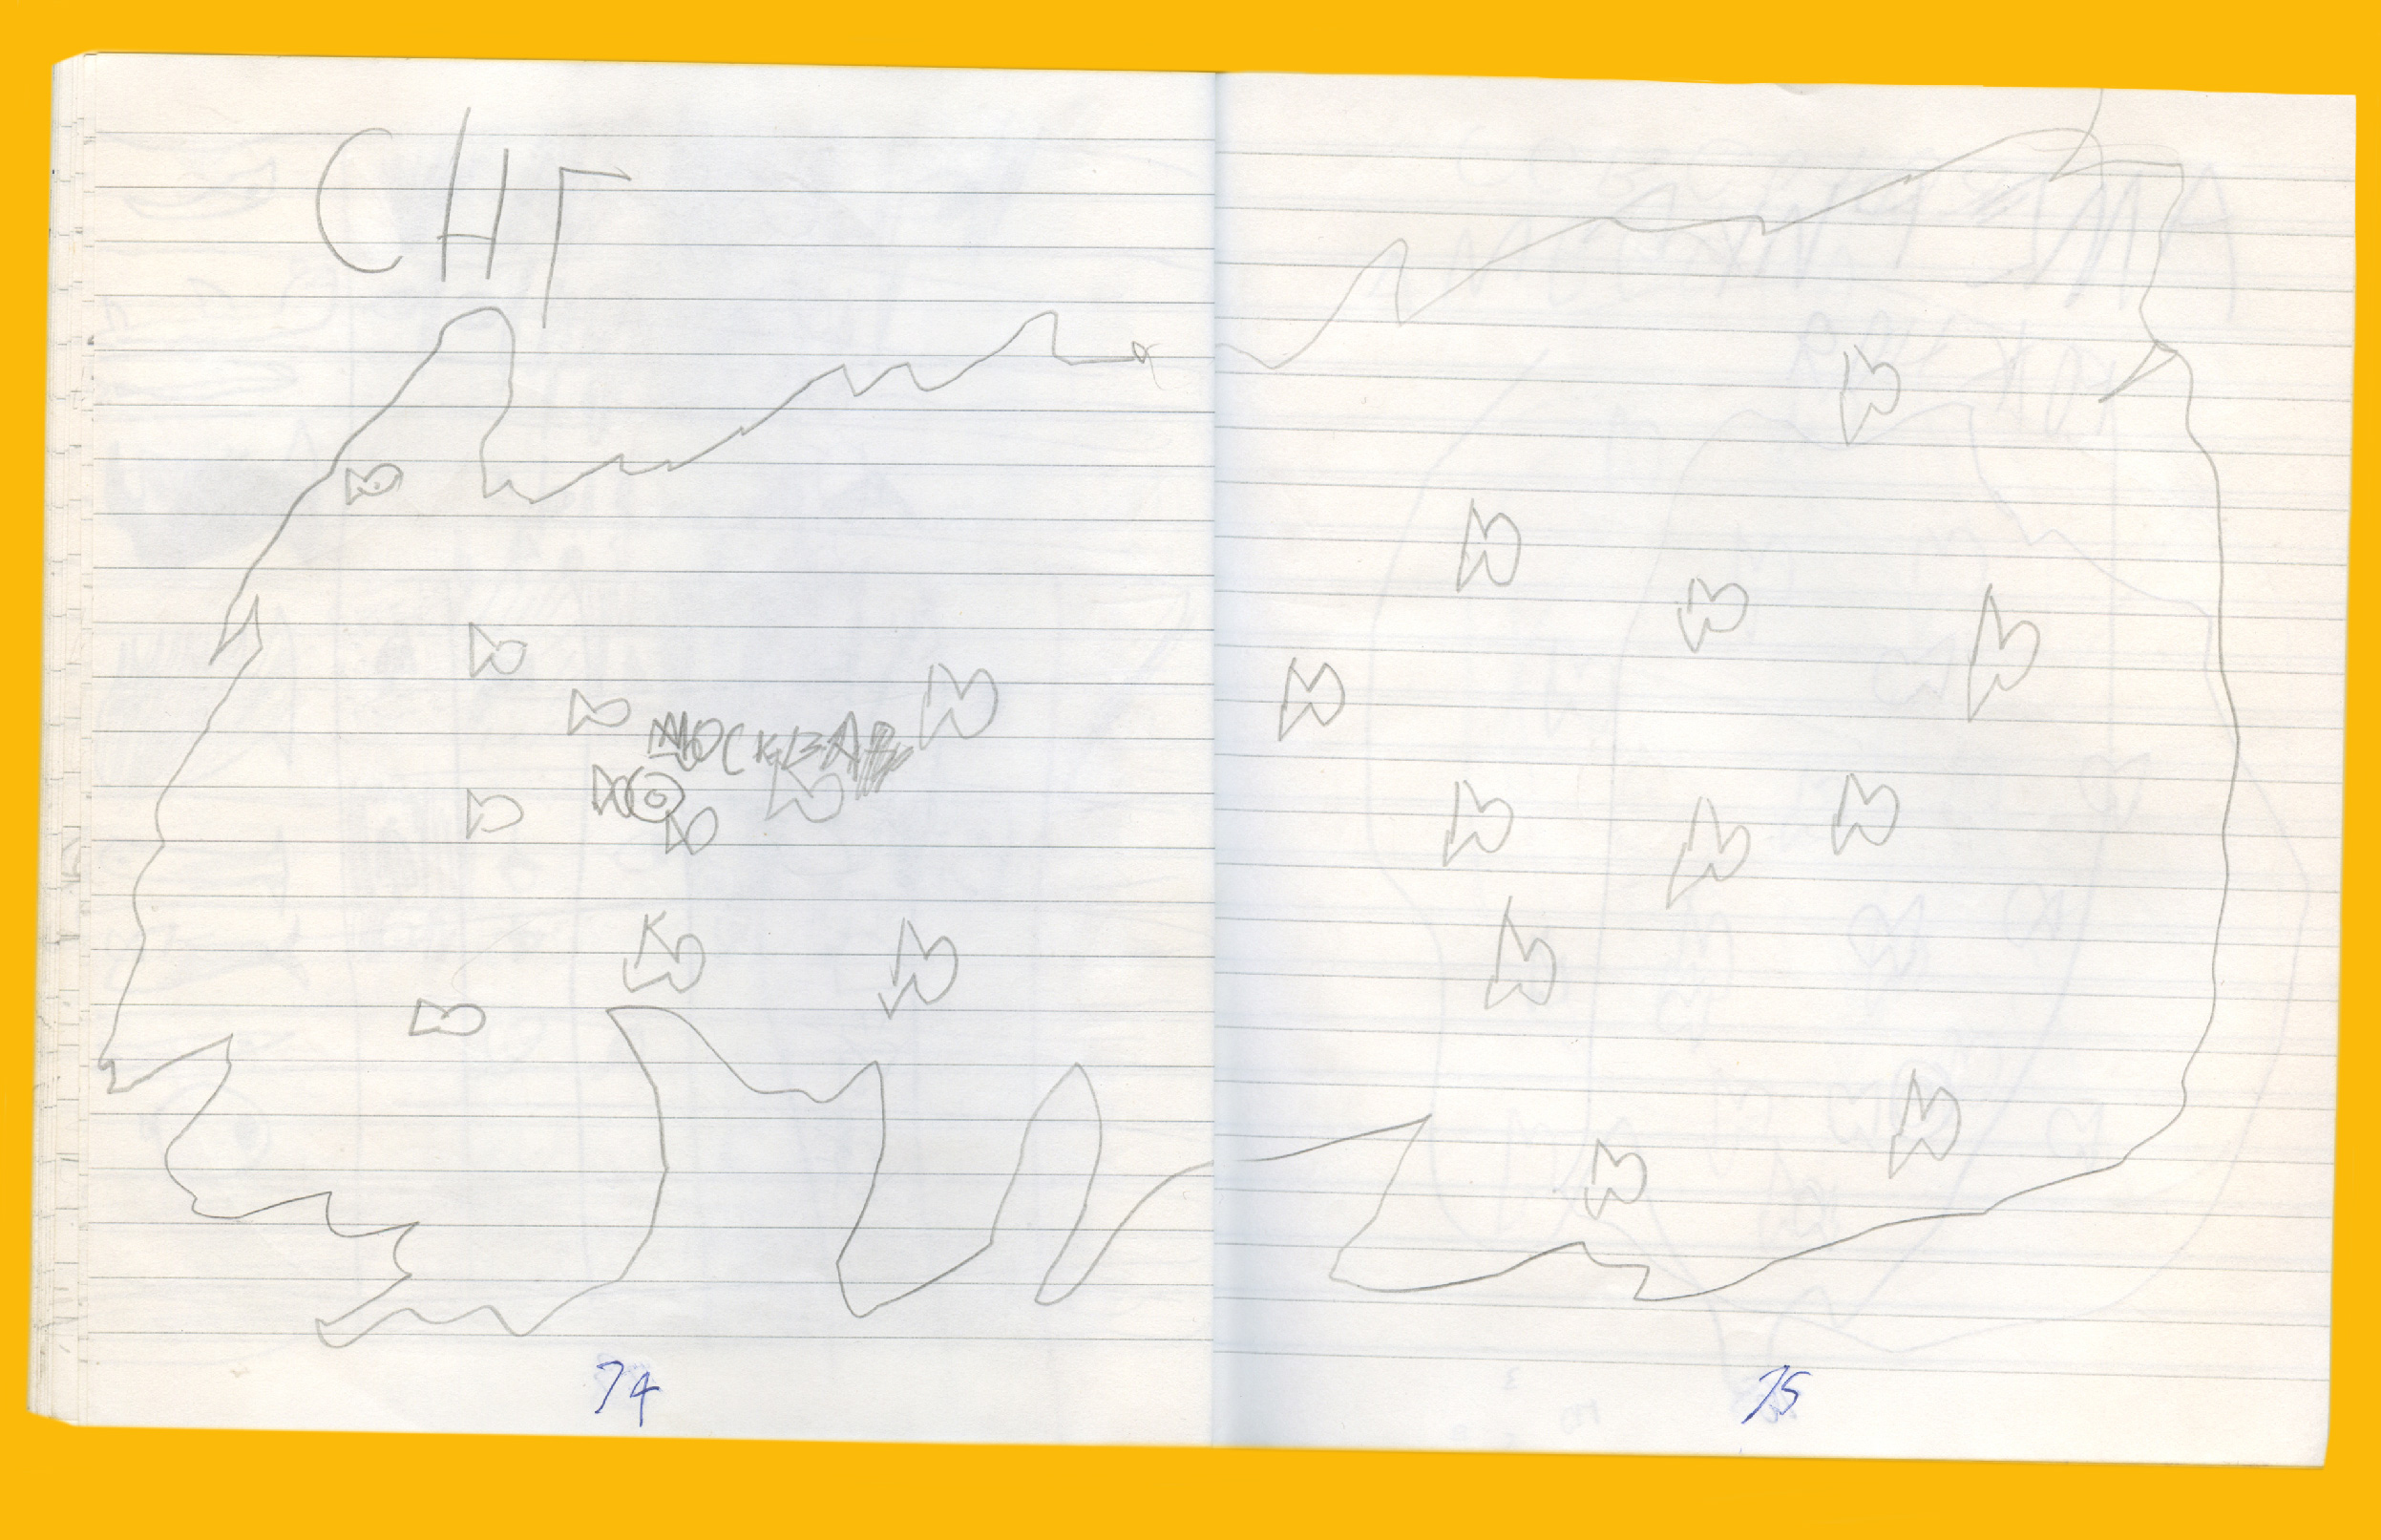 СНГ
МОСКВА
74
75